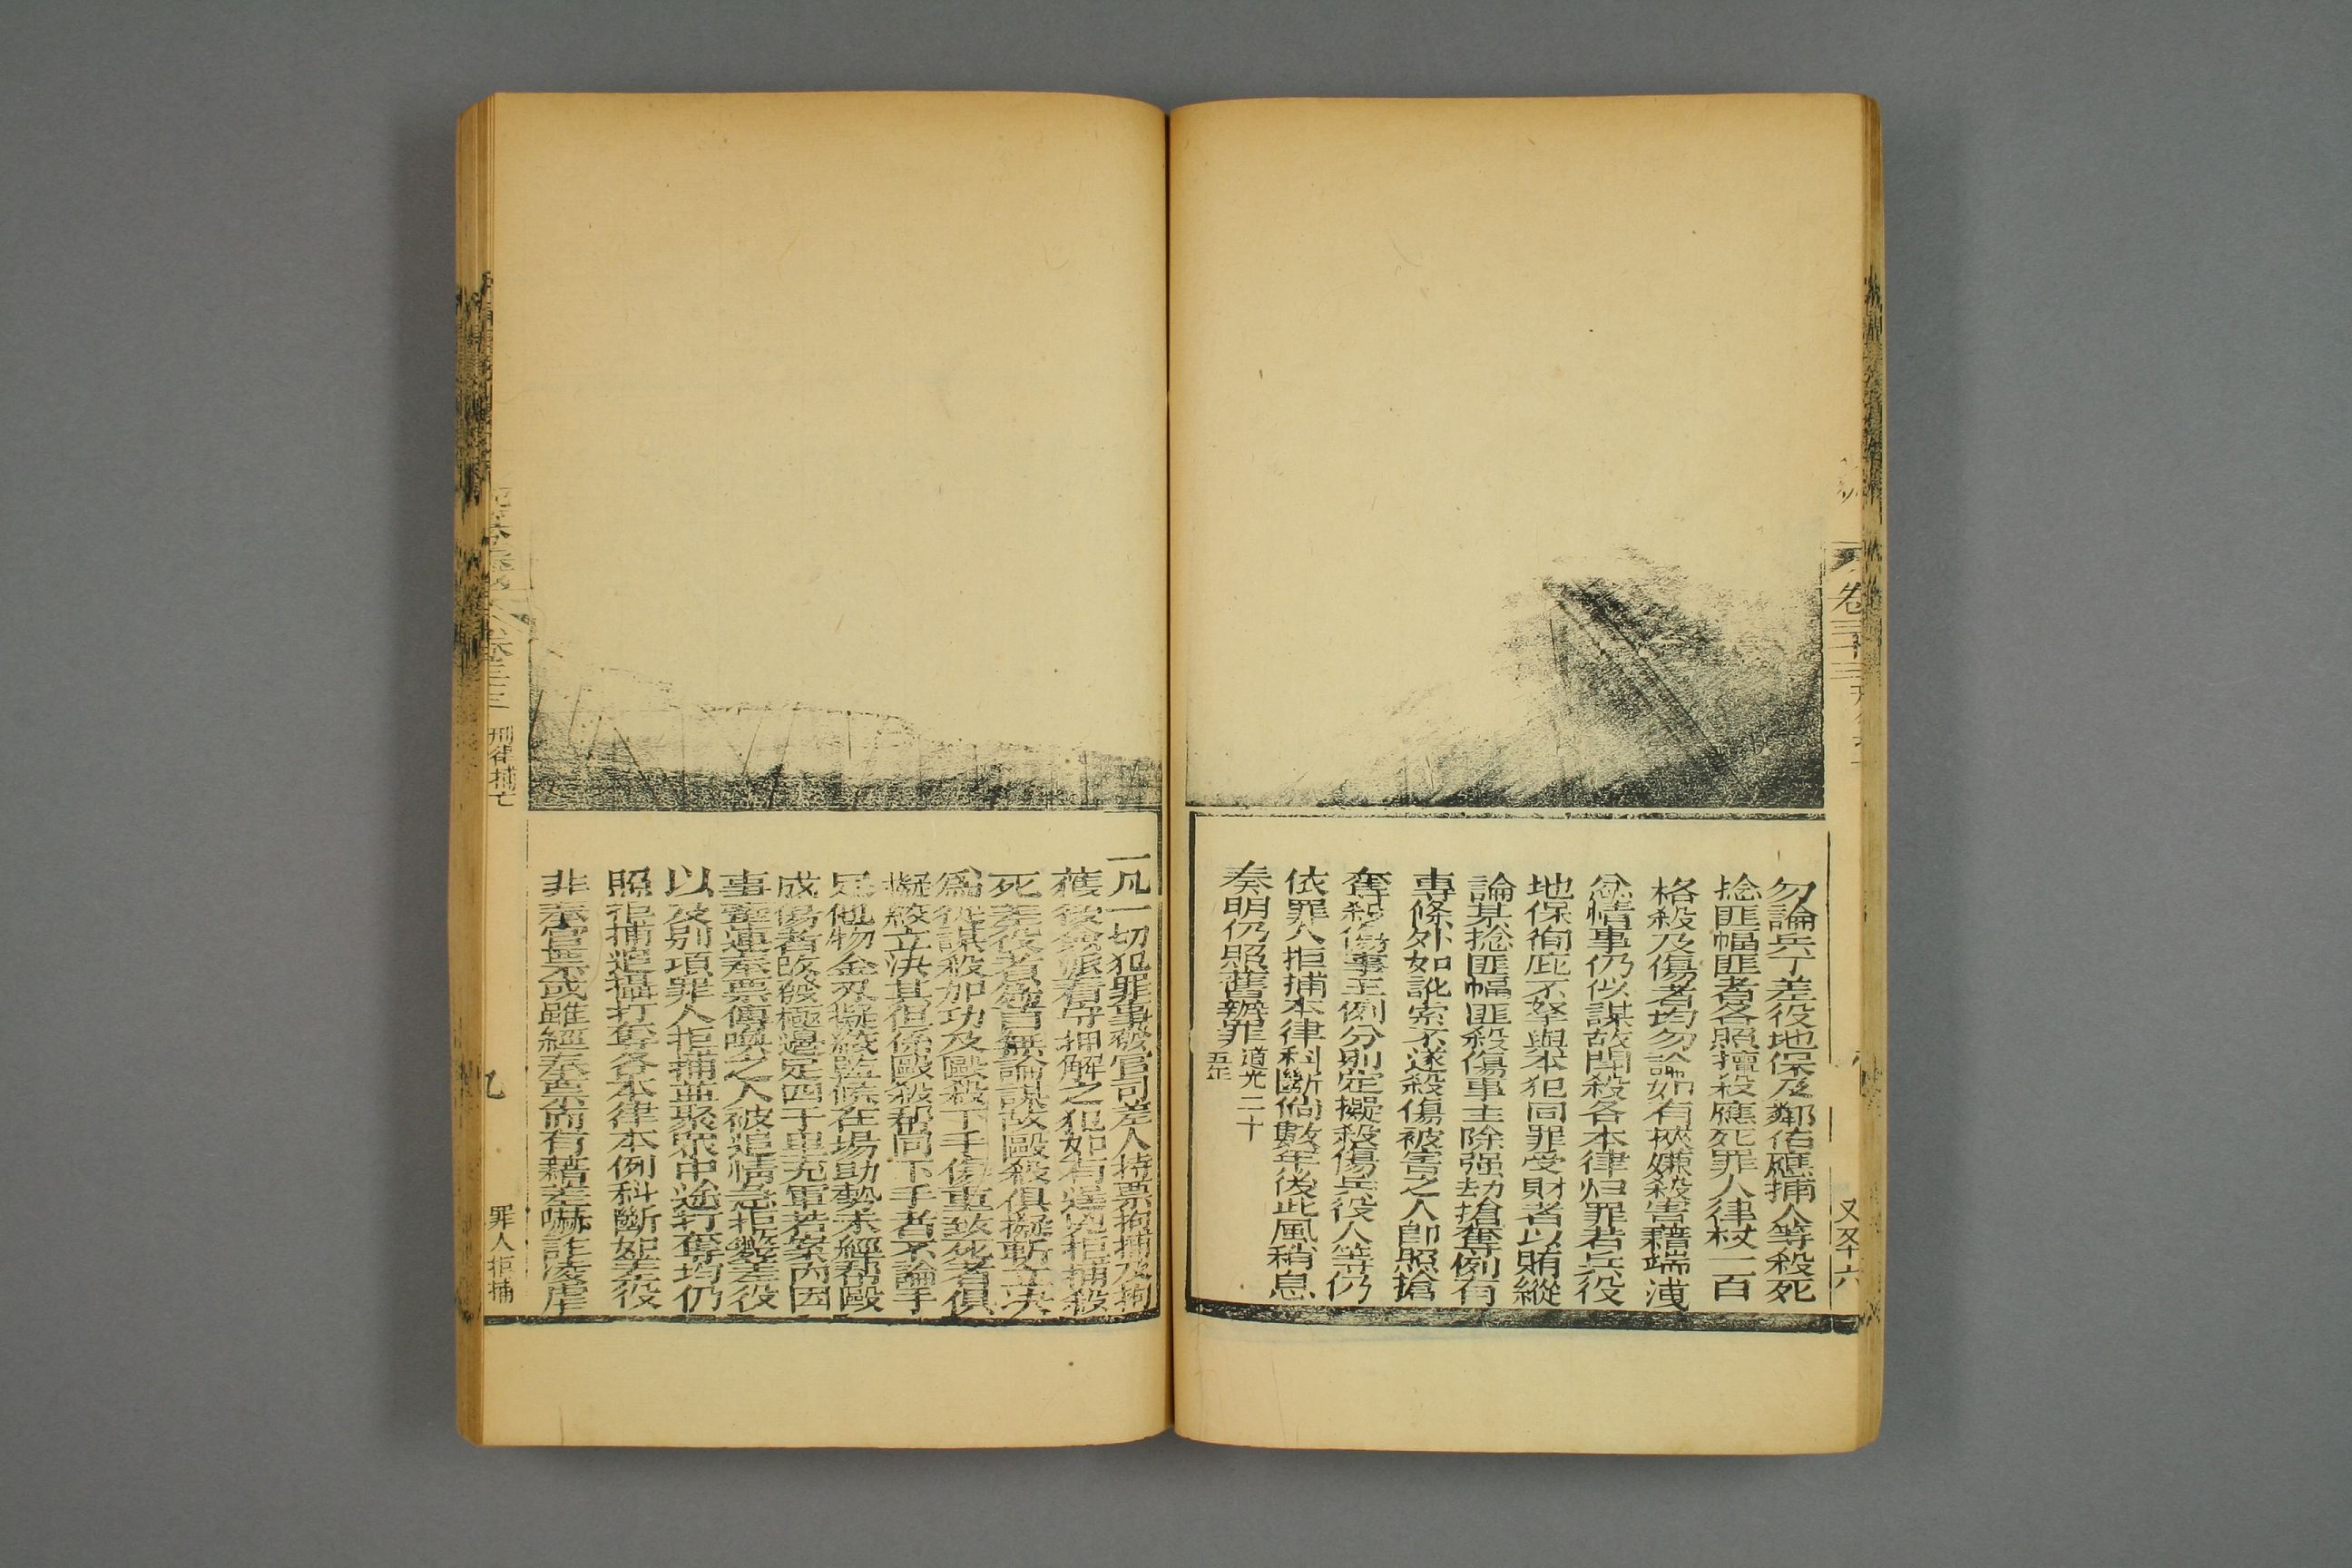 卷三十三
又又十六
勿論兵丁差役地保及鄰佑應捕人等殺死
捻匪幅匪者各照擅殺應死罪人律杖一百
格殺及傷者均勿論如有挾嫌殺害藉端洩
忿情事仍依謀故鬪殺各本律归罪若兵役
地保徇庇不拏與本犯同罪受財者以賄縱
論某捻匪幅匪殺傷事主除强劫搶奪例有
專條外如訛索不遂殺傷被害之人卽照搶
奪殺傷事主例分別定擬殺傷兵役人等仍
依罪人拒捕本律科斷倘數年後此風稍息
奏明仍照舊辦罪道光二十五年
一凡一切犯罪事發官司差人持票拘捕及拘
獲後僉派看守押解之犯如有逞兇拒捕殺
死差役者爲首無論謀故毆殺俱擬斬立決
爲從謀殺加功及毆殺下手傷重致死者俱
擬絞立決其但係毆殺帮同下手者不論手
足他物金刃擬絞監候在場助勢未經帮毆
成傷者改發極邊足四千里充軍若案內因
事牽連奉票傳喚之人被追情急拒斃差役
以及別項罪人拒捕並聚眾中途打奪均仍
照拒捕追攝打奪各本律本例科斷如差役
非奉官票或雖經奉票而有藉差嚇詐凌虐
卷三十三
刑律捕亡
罪人拒捕